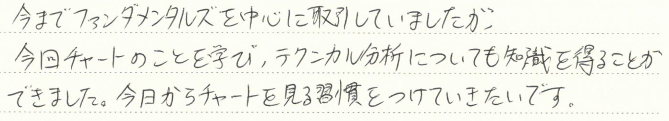 今までファンダメンタルズを中心に取引していましたが、
今回チャートのことを学び、テクニカル分析についても知識を得ることが
できました。今日からチャートを見る習慣をつけていきたいです。